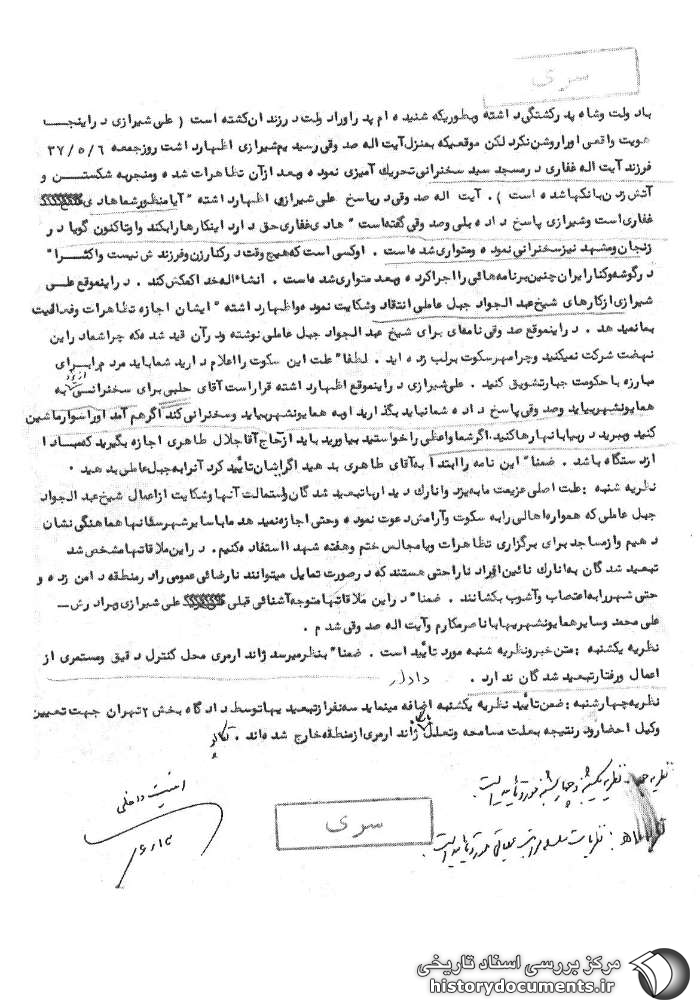 سری
بادولت وشاه پدرکشتگی داشته وبطوریکه شنیده ام پدر اورادولت درزندان کشته است ( علی شیرازی دراینجا
هویت واقعی اوراروشن نکرد لکن موقعیکه بمنزل آیت اله صدوقی رسیدیم شیرازی اظهارداشت روزجمعه ۳۷/۵/۶
فرزند آیت اله غفاری درمسجد سید سخنرانی تحریک آمیزی نموده وبعد ازآن تظاهرات شده ومنجربه شکستن و
آتش زدن بانکهاشده است ) . آیت اله صدوقی درپاسخ علی شیرازی اظهارداشته "آیامنظورشماهادی
غفاری است وشیرازی پاسخ داده بلی وصدوقی گفته است" هادی غفاری حق دارد اینکارهارابکند واوتاکنون گویا در
زنجان ومشهد نیزسخنرانی نموده ومتواری شده است . اوکسی است که هیچ وقت درکنارزن وفرزندش نیست واکثرا"
درگوشه وکنارایران چنین برنامه هائی رااجراکرده وبعد متواری شده است . انشاءاله خداکمکش کند . دراینموقع علی
شیرازی ازکارهای شیخ عبدالجواد جبل عاملی انتقاد وشکایت نموده واظهارداشته "ایشان اجازه تظاهرات وفعالیت
بمانمیدهد . دراینموقع صدوقی نامه‌ای برای شیخ عبدالجواد جبل عاملی نوشته ودرآن قید شده که چراشمادراین
نهضت شرکت نمیکنید وچرامهرسکوت برلب زده اید . لطفا" علت این سکوت رااعلام دارید شمابایدمردم رابرای
مبارزه باحکومت جبارتشویق کنید . علی شیرازی دراینموقع اظهارداشته قراراست آقای حلبی برای سخنرانی به
همایونشهربیاید وصدوقی پاسخ داده شمانباید بگذارید اوبه همایونشهربیاید وسخنرانی کند اگرهم آمد اوراسوارماشین
کنید وببرید دربیابانهارهاکنید.اگرشماواعظی راخواستید بیاورید باید ازحاج آقاجلال طاهری اجازه بگیرید که‌مبادا
ازدستگاه باشد . ضمنا" این نامه راابتدا به‌آقای طاهری بدهید اگرایشان تأیید کرد آنرابه‌جبل عاملی بدهید .
نظریه شنبه : علت اصلی عزیمت مابه‌یزد وانارک دیدارباتبعید شدگان واستمالت آنهاوشکایت ازاعمال شیخ عبدالجواد
جبل عاملی که همواره‌اهالی رابه سکوت وآرامش دعوت نموده وحتی اجازه‌نمیدهد ماباسایرشهرستانهاهماهنگی نشان
دهیم وازمساجد برای برگزاری تظاهرات ویامجالس ختم وهفته شهدااستفاده‌کنیم . دراین‌ملاقاتهامشخص شد
تبعید شدگان به‌انارک نائین افراد ناراحتی هستند که درصورت تمایل میتوانند نارضائی عمومی رادرمنطقه دامن زده و
حتی شهررابه‌اعتصاب وآشوب بکشانند . ضمنا" دراین ملاقاتهامتوجه‌آشنائی قبلی علی شیرازی وبرادرش -
علی محمد وسایرهمایونشهریهاباناصرمکارم وآیت اله صدوقی شدم .
نظریه یکشنبه : متن خبرونظریه شنبه مورد تأیید است . ضمنا" بنظرمیرسد ژاندارمری محل کنترل دقیق ومستمری از
اعمال ورفتارتبعید شدگان ندارد . دادلر
نظریه‌چهارشنبه : ضمن‌تأیید نظریه یکشنبه اضافه مینماید سه‌نفرازتبعیدیهاتوسط دادگاه بخش ۲تهران جهت تعیین
وکیل احضارودرنتیجه بعلت مسامحه وتعلل ژاندارمری ازمنطقه خارج شده‌اند .
نظریه جمعه : نظریه یکشنبه و چهارشنبه مورد تأیید است .
امنیت داخلی
سری
مرکز بررسی اسناد تاریخی
historydocuments.ir